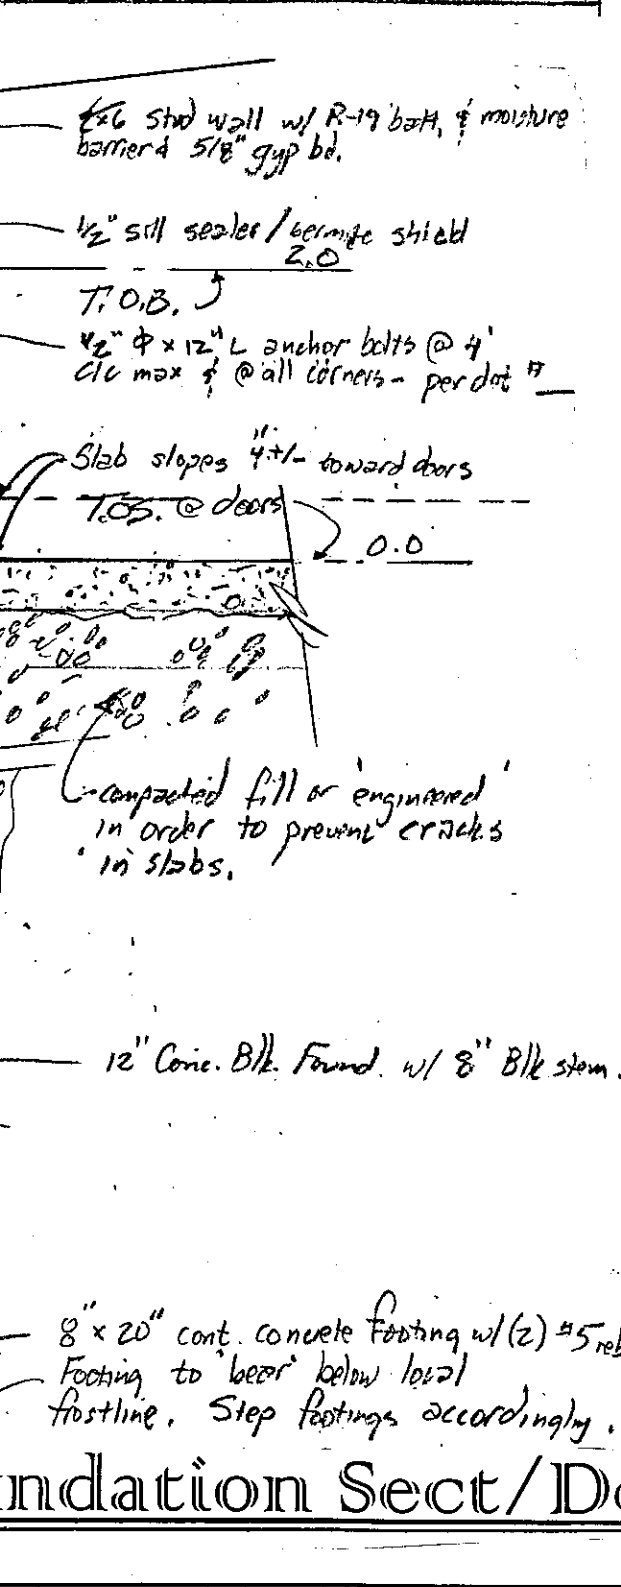 2x6 stud wall w/ R-19 batt, & moisture
barrier & 5/8" gyp bd.
1/2" sill sealer/termite shield
2.0
T.O.B.
1/2" ϕ x 12" L anchor bolts @ 4'
c/c max & @ all corners - per det #
Slab slopes 4" +/- toward doors
T.O.S. @ doors
0.0
compacted fill or 'engineered'
in order to prevent cracks
in slabs.
12" Conc. Blk. Found. w/ 8" Blk stem.
8" x 20" cont. concrete footing w/(2) #5 reb
Footing to 'bear' below local
frostline. Step footings accordingly.
ndation Sect/De